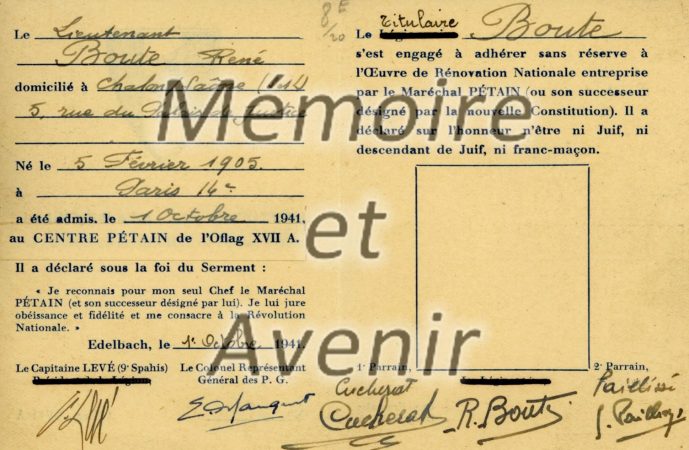 8E
/20
Le Lieutenant
Boute René
domicilié à Chalon s/Saône (S&L)
5, rue du Palais de Justice
Né le 5 Février 1905.
à Paris 14e
a été admis. le 1 Octobre 1941,
au CENTRE PÉTAIN de l'Oflag XVII A.
Il a déclaré sous la foi du Serment :
« Je reconnais pour mon seul Chef le Maréchal
PÉTAIN (et son successeur désigné par lui). Je lui jure
obéissance et fidélité et me consacre à la Révolution
Nationale. »
Edelbach, le 1er Octobre 1941.
Le Capitaine LEVÉ (9e Spahis)
Le Colonel Représentant
Général des P. G.
Titulaire
Le Boute
s'est engagé à adhérer sans réserve à
l'Œuvre de Rénovation Nationale entreprise
par le Maréchal PÉTAIN (ou son successeur
désigné par la nouvelle Constitution). Il a
déclaré sur l'honneur n'être ni Juif, ni
descendant de Juif, ni franc-maçon.
1er Parrain,
2e Parrain,
Cucherat
Cucherat
R. Boute
Mémoire
et
Avenir